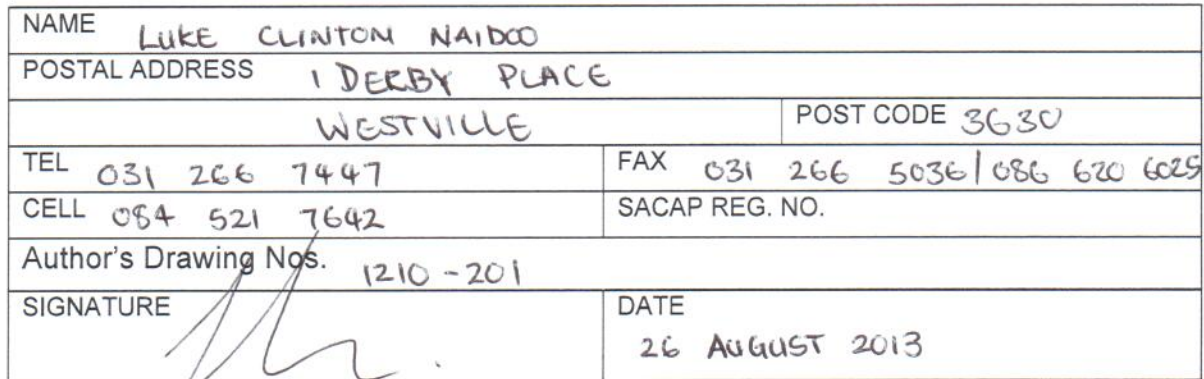 NAME LUKE CLINTON NAIDOO
POSTAL ADDRESS 1 DERBY PLACE
WESTVILLE POST CODE 3630
TEL 031 266 7447 FAX 031 266 5036/086 620 6025
CELL 084 521 7642 SACAP REG. NO.
Author's Drawing Nos. 1210-201
SIGNATURE DATE
26 AUGUST 2013